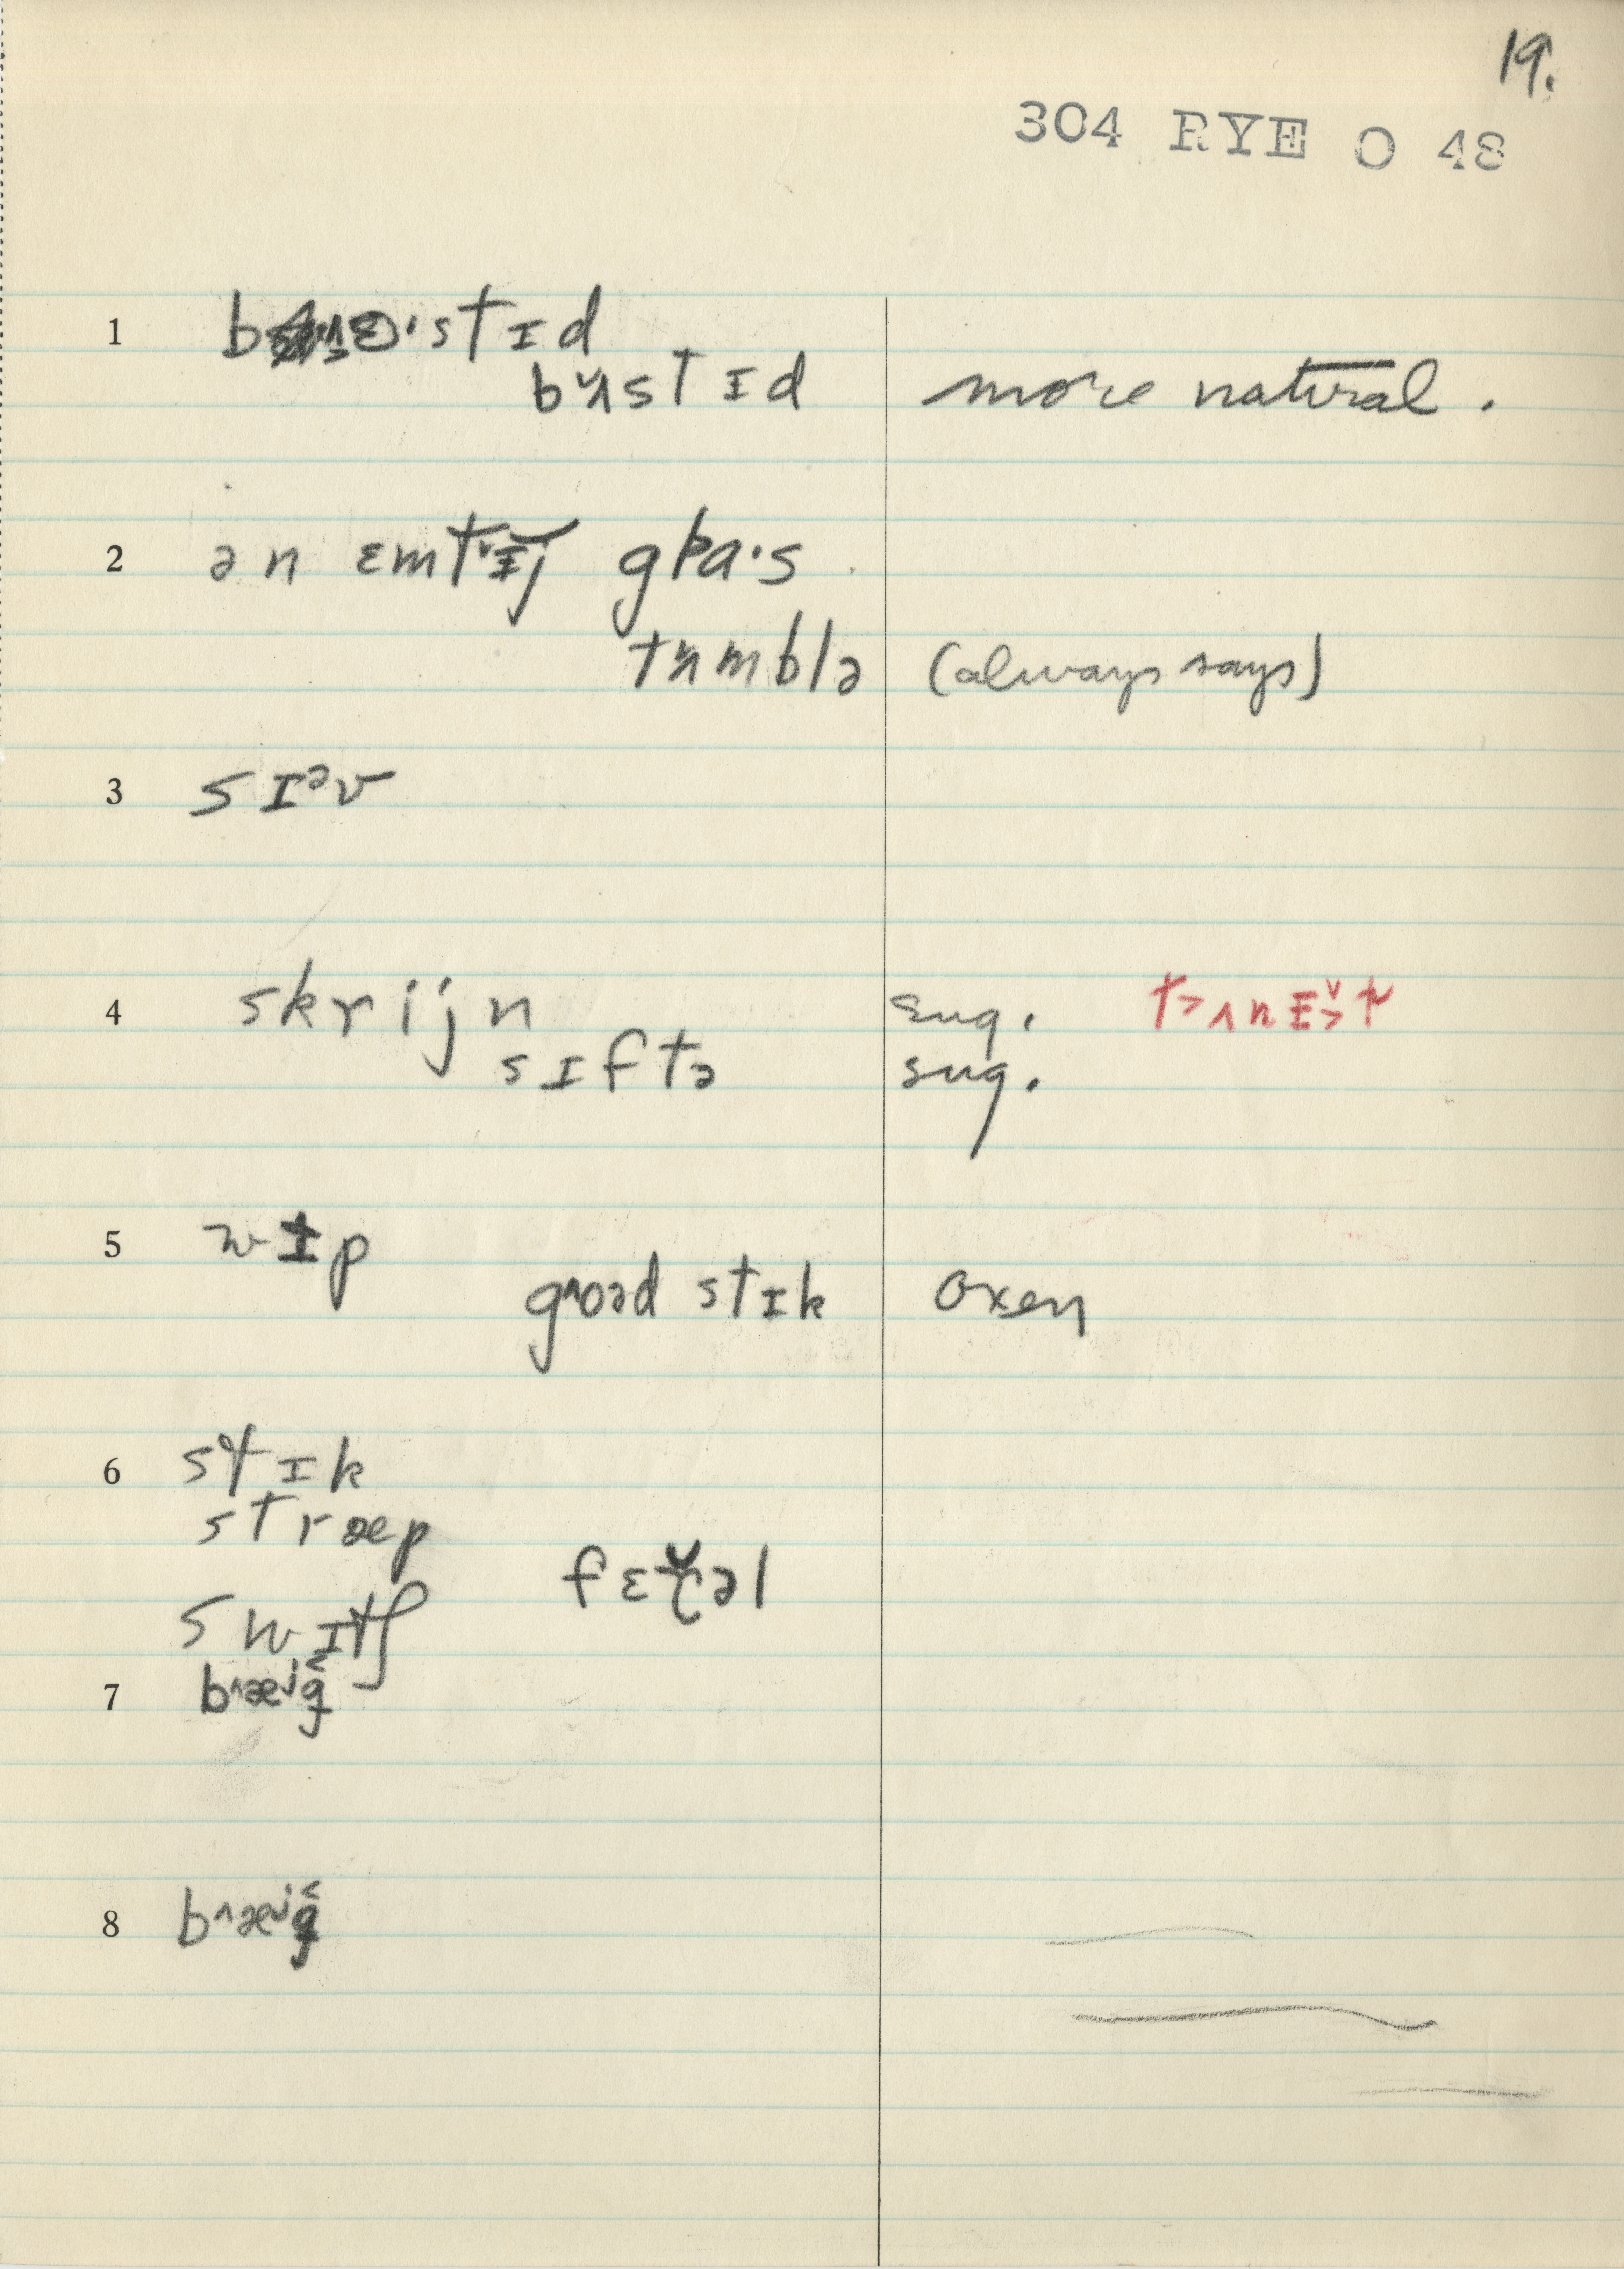 19.
304 RYE O 48
1 bɜ·stɪd
bʌ̌stɪd more natural.
2 ən ɛmtɪ̆j gɫa·s
tʌmblə (always says)
3 sɪᵊv
4 skrijn sug.
sɪftə sug.
5 wɪp
goəd stɪk oxen
6 stɪk
stræp
swɪtʃ
7 b^æʲg̬
8 b^æʲg̬